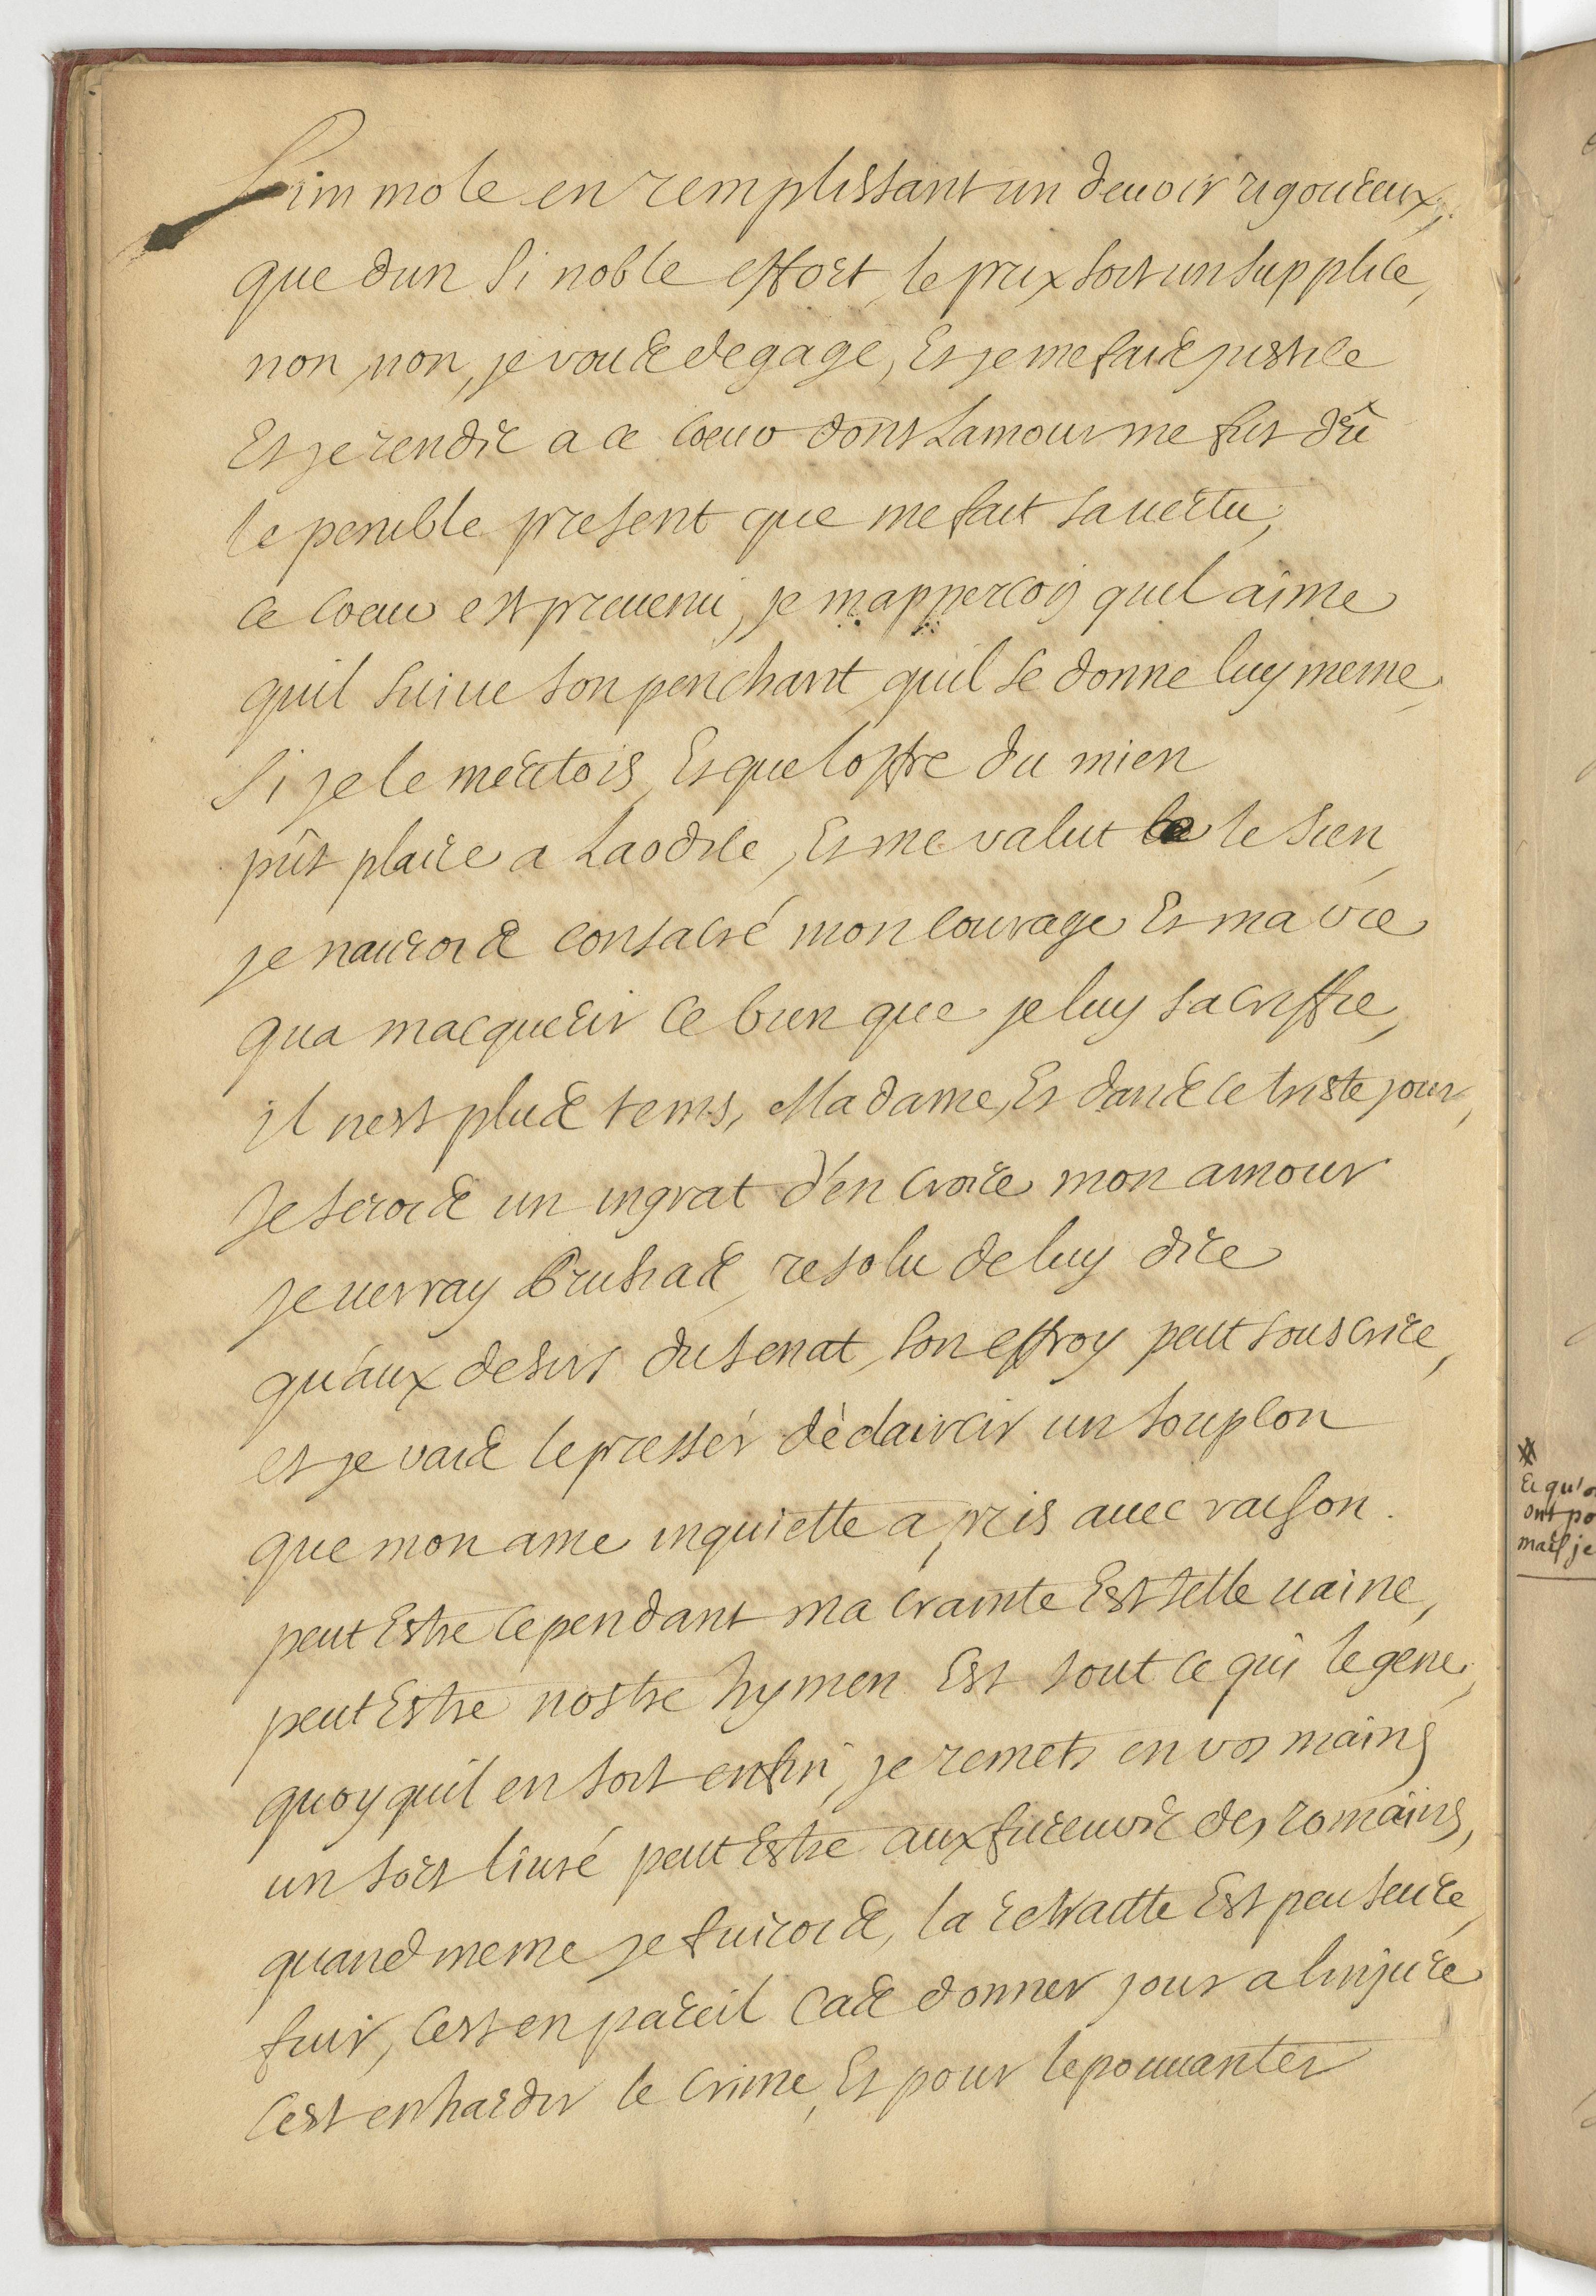 Limmole en remplissant un devoir rigoureux,
que dun si noble effort, le prix soit un supplice,
non, non, je vous degage, Et je me fais justice
Et je rends a ce coeur dont Lamour me fut dû
le penible present que me fait sa uertu,
ce coeur est preuenu, je mappercois quil aime
quil suiue son penchant, quil se donne luy meme,
Si je le meritois, Et que loffre du mien
pût plaire a Laodice, Et me valut le sien,
je naurois consacré mon courage Et ma vie
qua macquerir ce bien que je luy sacriffie,
il nest plus tems, Madame, Et dans ce triste jour,
Je serois un ingrat d'en croire mon amour
Je uerray Prusias, resolu de luy dire
qu'aux desirs du senat, son effroy peut souscrire,
et je vais le presser déclaircir un soupçon
que mon ame inquiette a pris auec raison.
peut Estre cependant ma crainte Est telle uaine,
peut Estre nostre hymen Est tout ce qui le gene,
quoy quil en soit enfin, je remets en vos mains
un sort liuré peut Estre aux fureurs des romains,
quand meme je fuirois, la retraitte Est peu seure,
fuir, cest en pareil cas donner jour a linjure
Cest enhardir le crime, Et pour lepouuanter
Et qu'o
ont po
mais je